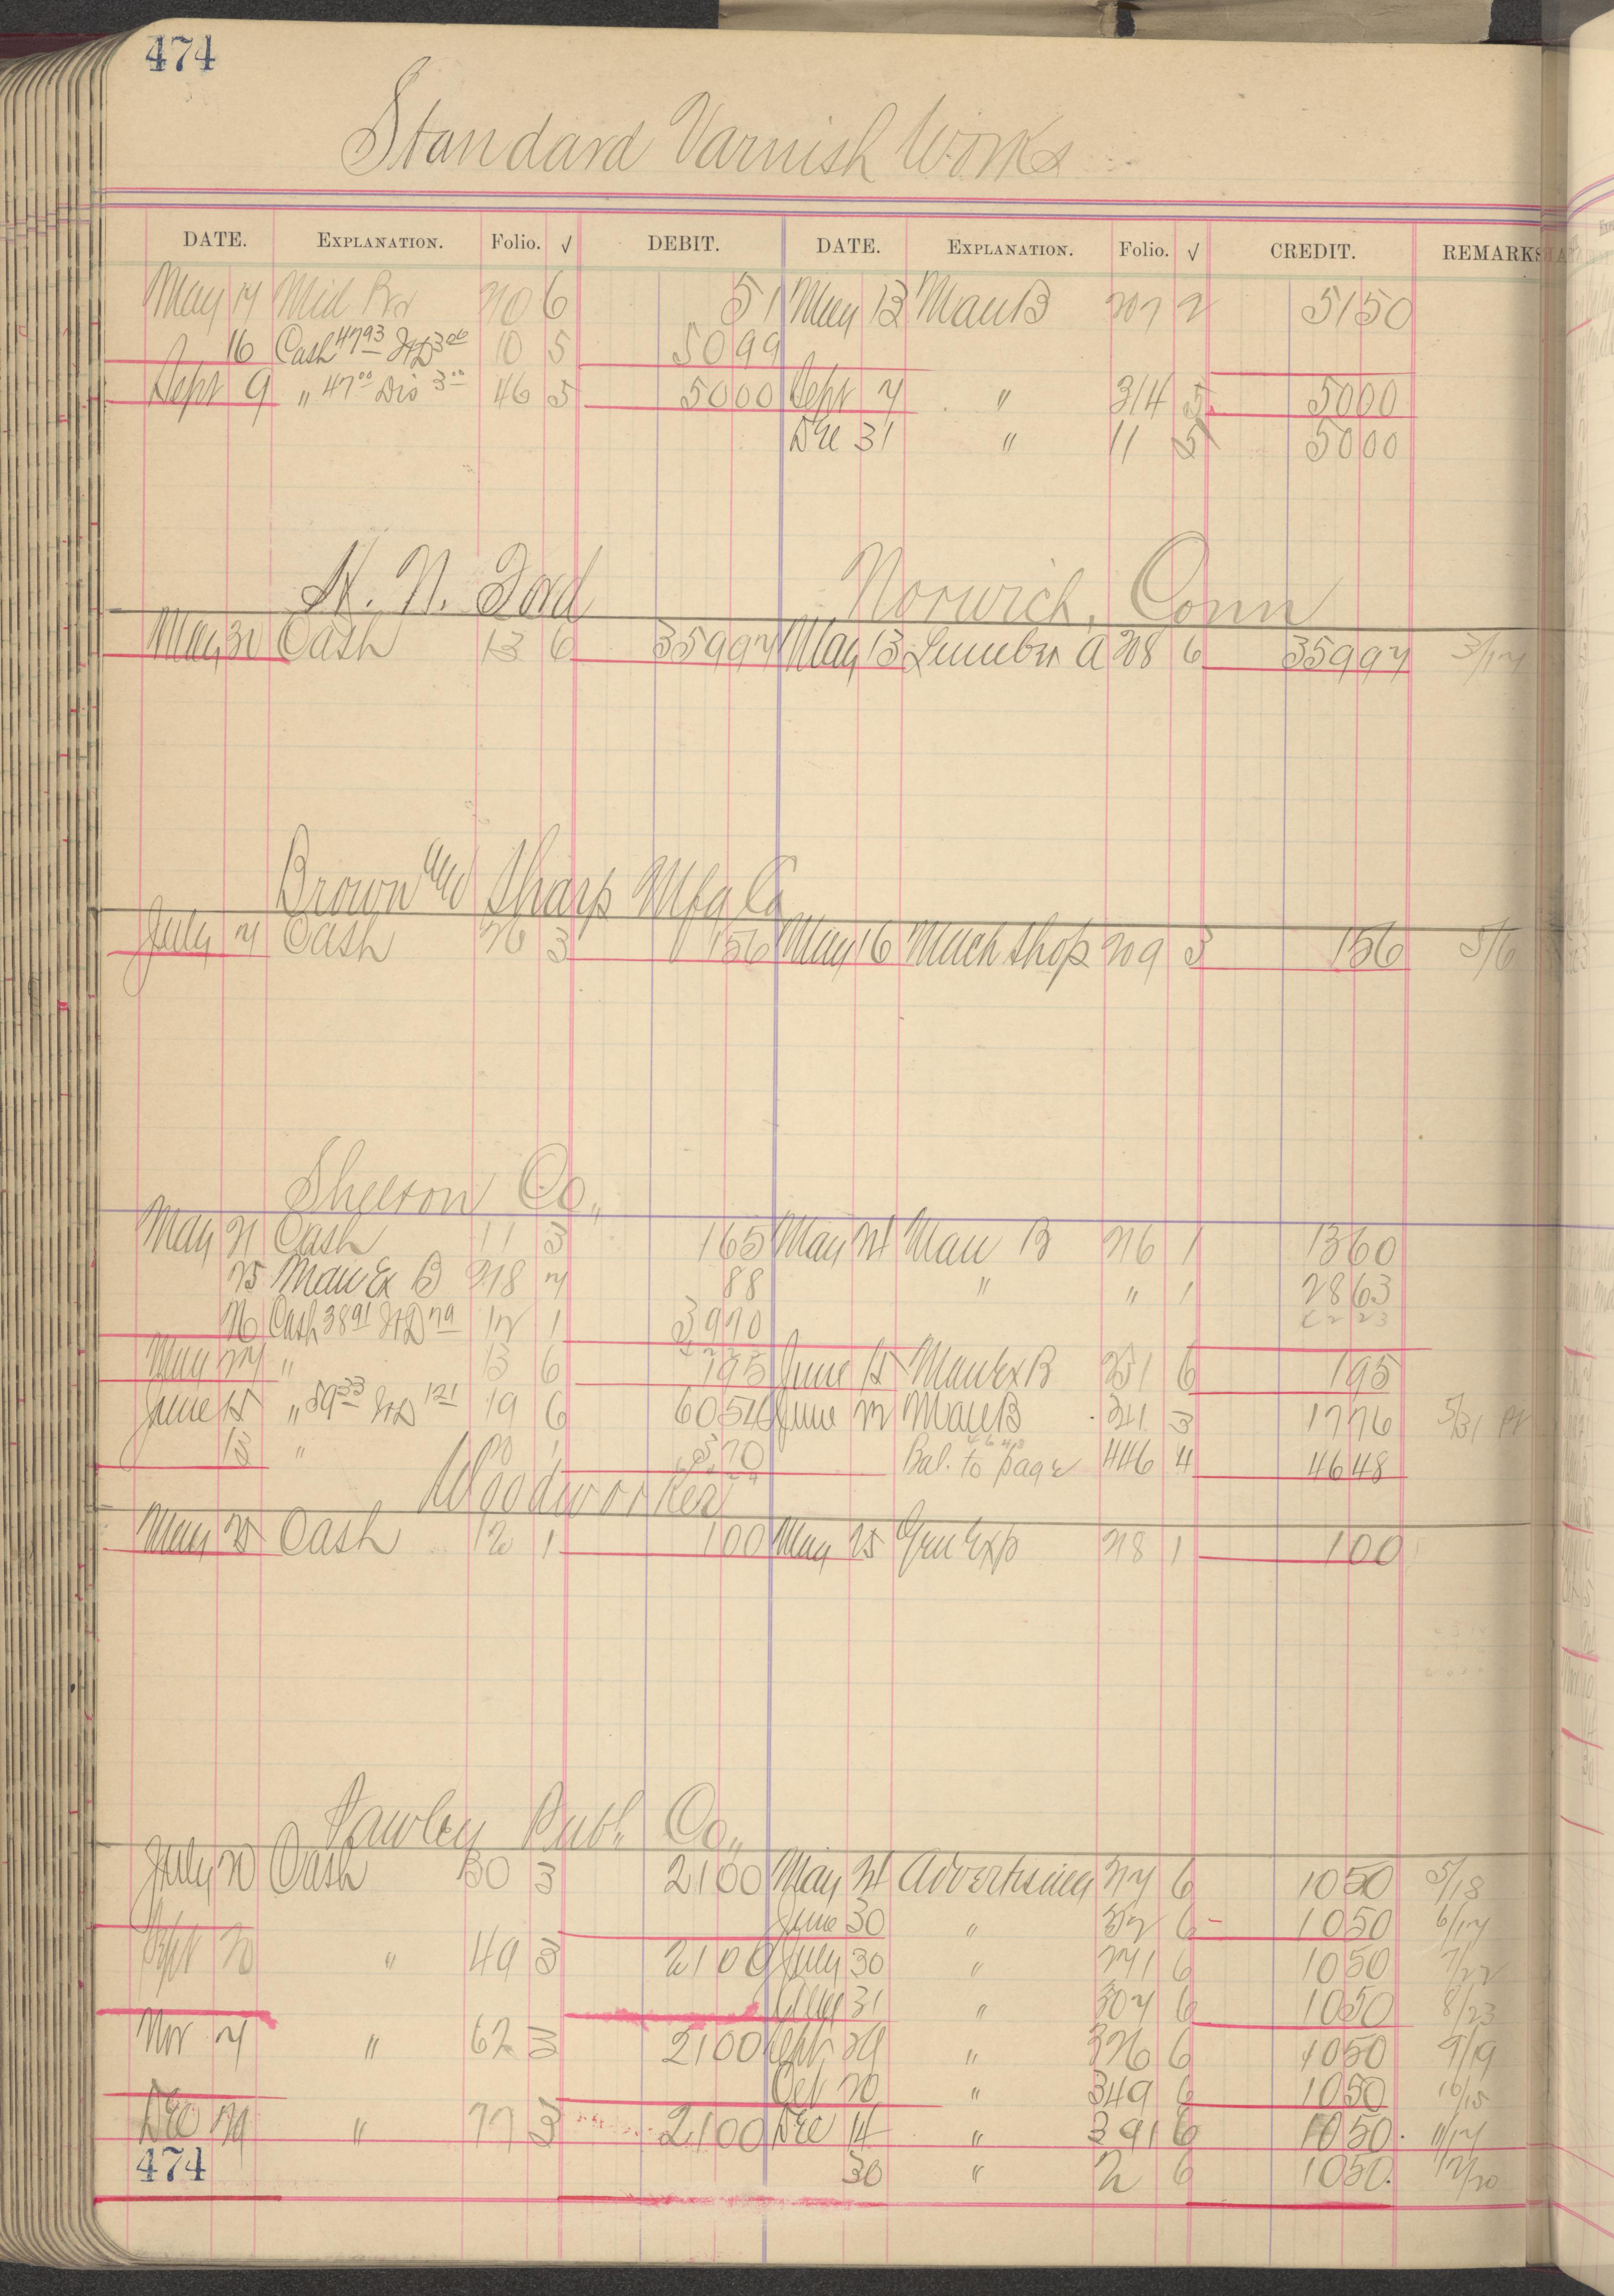 474
Standard Varnish Works
DATE. EXPLANATION. Folio. √ DEBIT. DATE. EXPLANATION. Folio. √ CREDIT. REMARKS
May 17 Mid Br 210 6 51 May 13 Man B 207 2 5150
16 Cash 4793 Frt D 306 10 5 5099
Sept 9 " 4700 Dis 300 46 5 5000 Sept 7 " 314 5 5000
Dec 31 " 11 5 5000
H. N. Ford Norwich, Conn
May 31 Cash 13 6 35997 May 13 Lumber A 208 6 35997 3/17
Brown and Sharp Mfg Co
July 7 Cash 26 3 156 May 16 Mach Shop 209 3 156 5/6
Shelton Co.,
May 21 Cash 11 3 165 May 24 Man B 216 1 1360
25 Man Ex B 218 7 88 " " 1 2863
26 Cash 3891 Frt D 79 12 1 3970
May 27 " 13 6 195 June 15 Man Ex B 251 6 195
June 15 " 5933 Frt D 121 19 6 6054 June 22 Man B 241 3 1776 5/31
18 " 20 1 370 Bal. to page 446 4 4648
Woodworker
May 25 Cash 12 1 100 May 25 Gen Exp 218 1 100
Pawley Publ. Co.,
July 20 Cash 30 3 2100 May 24 Advertising 217 6 1050 5/18
June 30 " 6 1050 6/17
Sept 20 " 49 3 2100 July 30 " 241 6 1050 7/22
Aug 31 " 307 6 1050 8/23
Nov 7 " 62 3 2100 Sept 29 " 326 6 1050 9/19
Oct 20 " 349 6 1050 10/15
Dec 29 " 77 3 2100 Dec 14 " 391 6 1050 11/17
474 30 " 2 6 1050 12/20